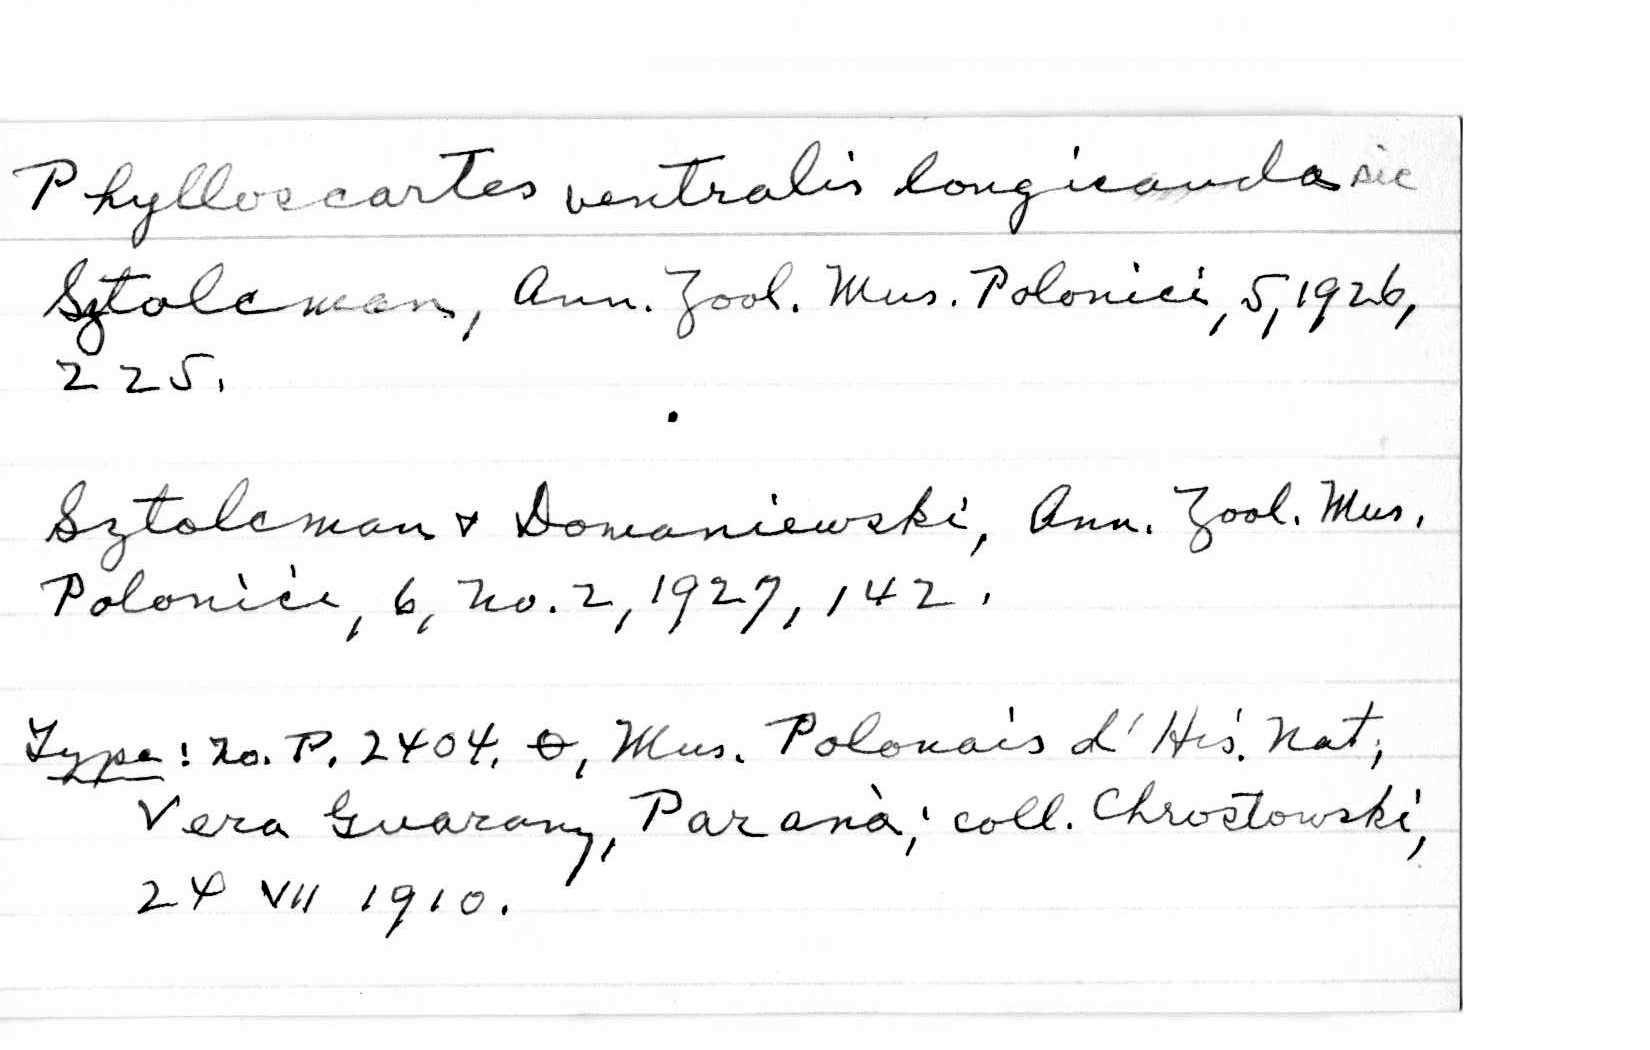 Phylloscartes ventralis longicauda sic
Sztolcman, Ann. Zool. Mus. Polonici, 5, 1926,
225.
Sztolcman & Domaniewski, Ann. Zool. Mus.
Polonici, 6, no. 2, 1927, 142.
Type: no. P. 2404. O, Mus. Polonais d'His. Nat;
Vera Guarany, Paranà; coll. Chrostowski,
24 VII 1910.